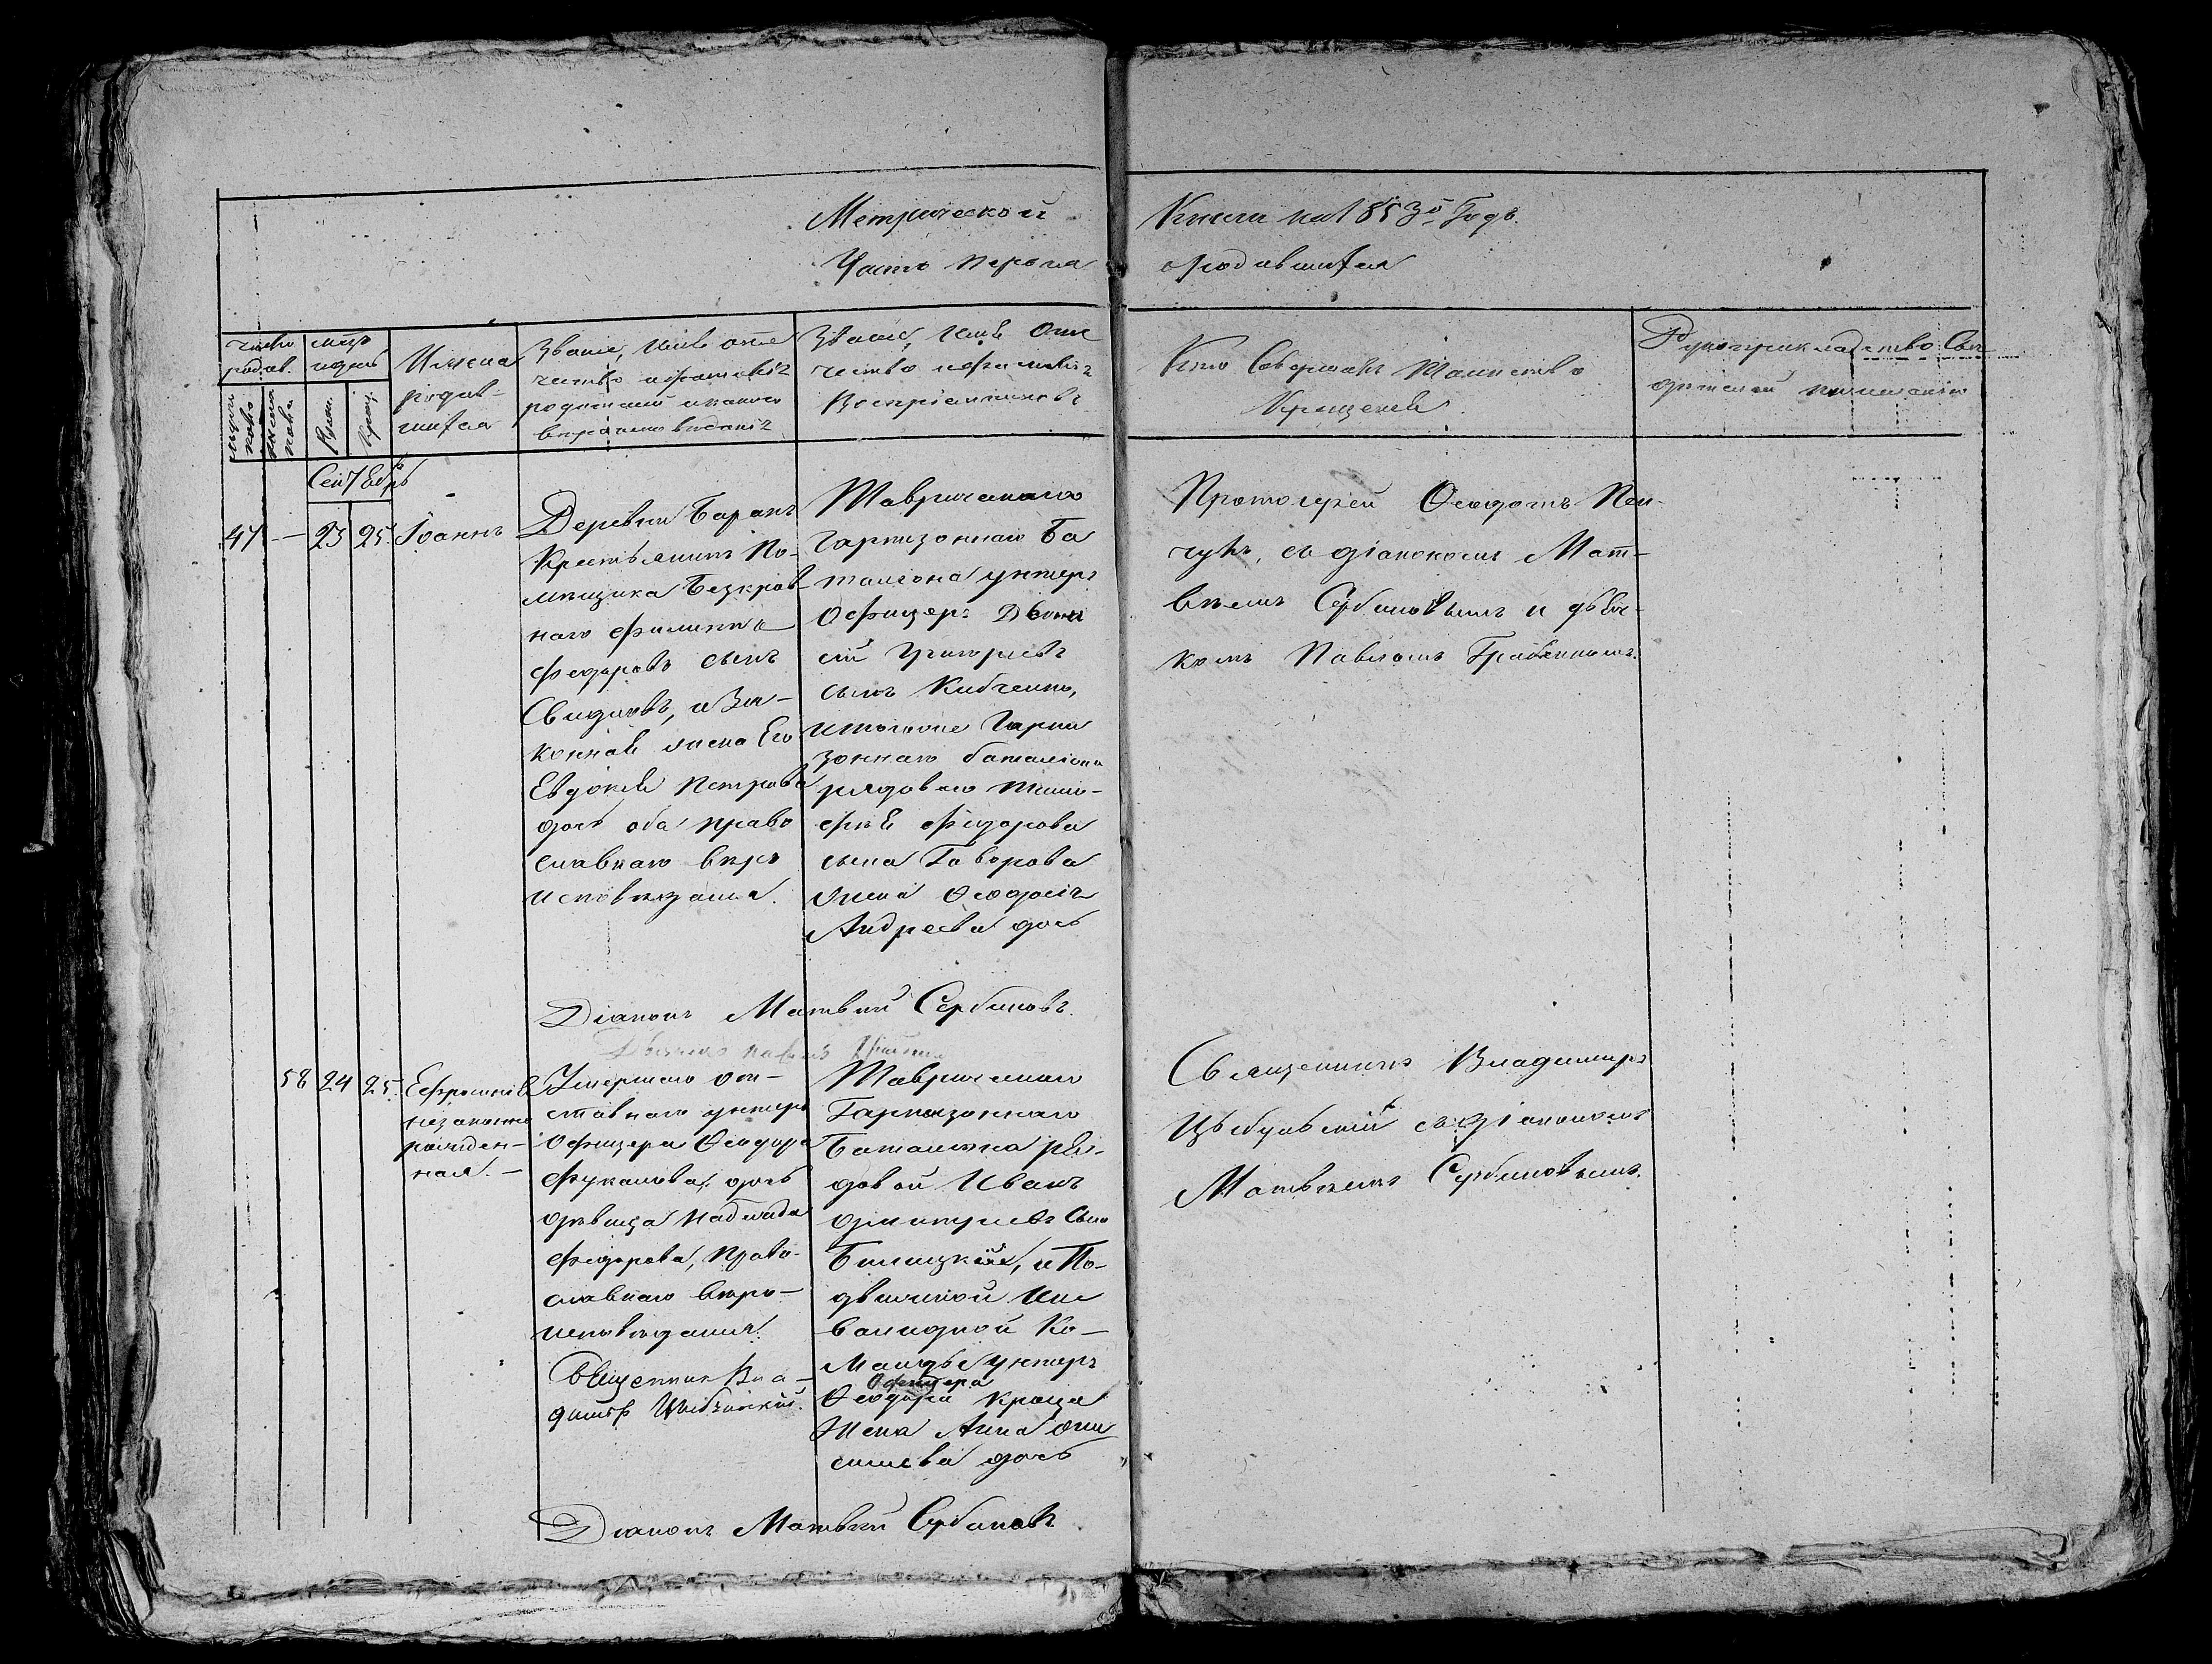 Метрической
Книги на 1853й Годъ.
Часть первая
о родившихся
число родив.
мѣсяцъ и день
мужеска пола
женска пола
Рожд.
Крещ.
Имена
родив-
шихся
Званіе, имя отче
чество и фамилія
родителей и какого
вѣроисповѣданія
Званіе, имя Отче
чество и фамилія
Воспріемниковъ
Кто Совершалъ Таинство
Крещенія
Рукоприкладство Сви
дѣтелей по желанію
Сентябрь
47 - 23 25 Іоаннъ
Деревни Баранъ
Крестьянинъ По-
мѣщика Безкров-
наго Филиппъ
Федоровъ сынъ
Свидловъ, и За-
конная жена Его
Евдокія Петрова
дочь оба право
славнаго вѣро
исповѣданія.
Таврическаго
Гарнизоннаго Ба
таліона унтеръ
Офицеръ
Григорьевъ
сынъ Кибченко,
и того же Гарни
зоннаго баталіона
рядоваго Тимо-
фея Федорова
сына Говорова
жена Феодосія
Андреева дочь
Протоіерей Феодотъ
съ діакономъ Мат-
вѣемъ Сербиновымъ и дьяч-
комъ Павломъ
Діаконъ Матвѣй Сербиновъ.
Дьячекъ Павелъ
58 24 25. Ефросинія
незаконно
рожден-
ная. -
Умершаго от-
ставнаго унтеръ
Офицера Феодора
Фуканова, дочь
дѣвица Надежда
Федорова, право-
славнаго вѣро-
исповѣданія.
Священникъ Вла-
диміръ Цыбульскій.
Таврическаго
Гарнизоннаго
Баталіона ря-
довой Иванъ
Дмитріевъ Сынъ
Билицкій, и По-
движной Ин
валидной Ко-
манды унтеръ
Офицера
Феодора Кроща
Жена Анна Они
симова дочь
Священникъ Владиміръ
Цыбульскій съ діакономъ
Матвѣемъ Сербиновымъ.
Діаконъ Матвѣй Сербиновъ